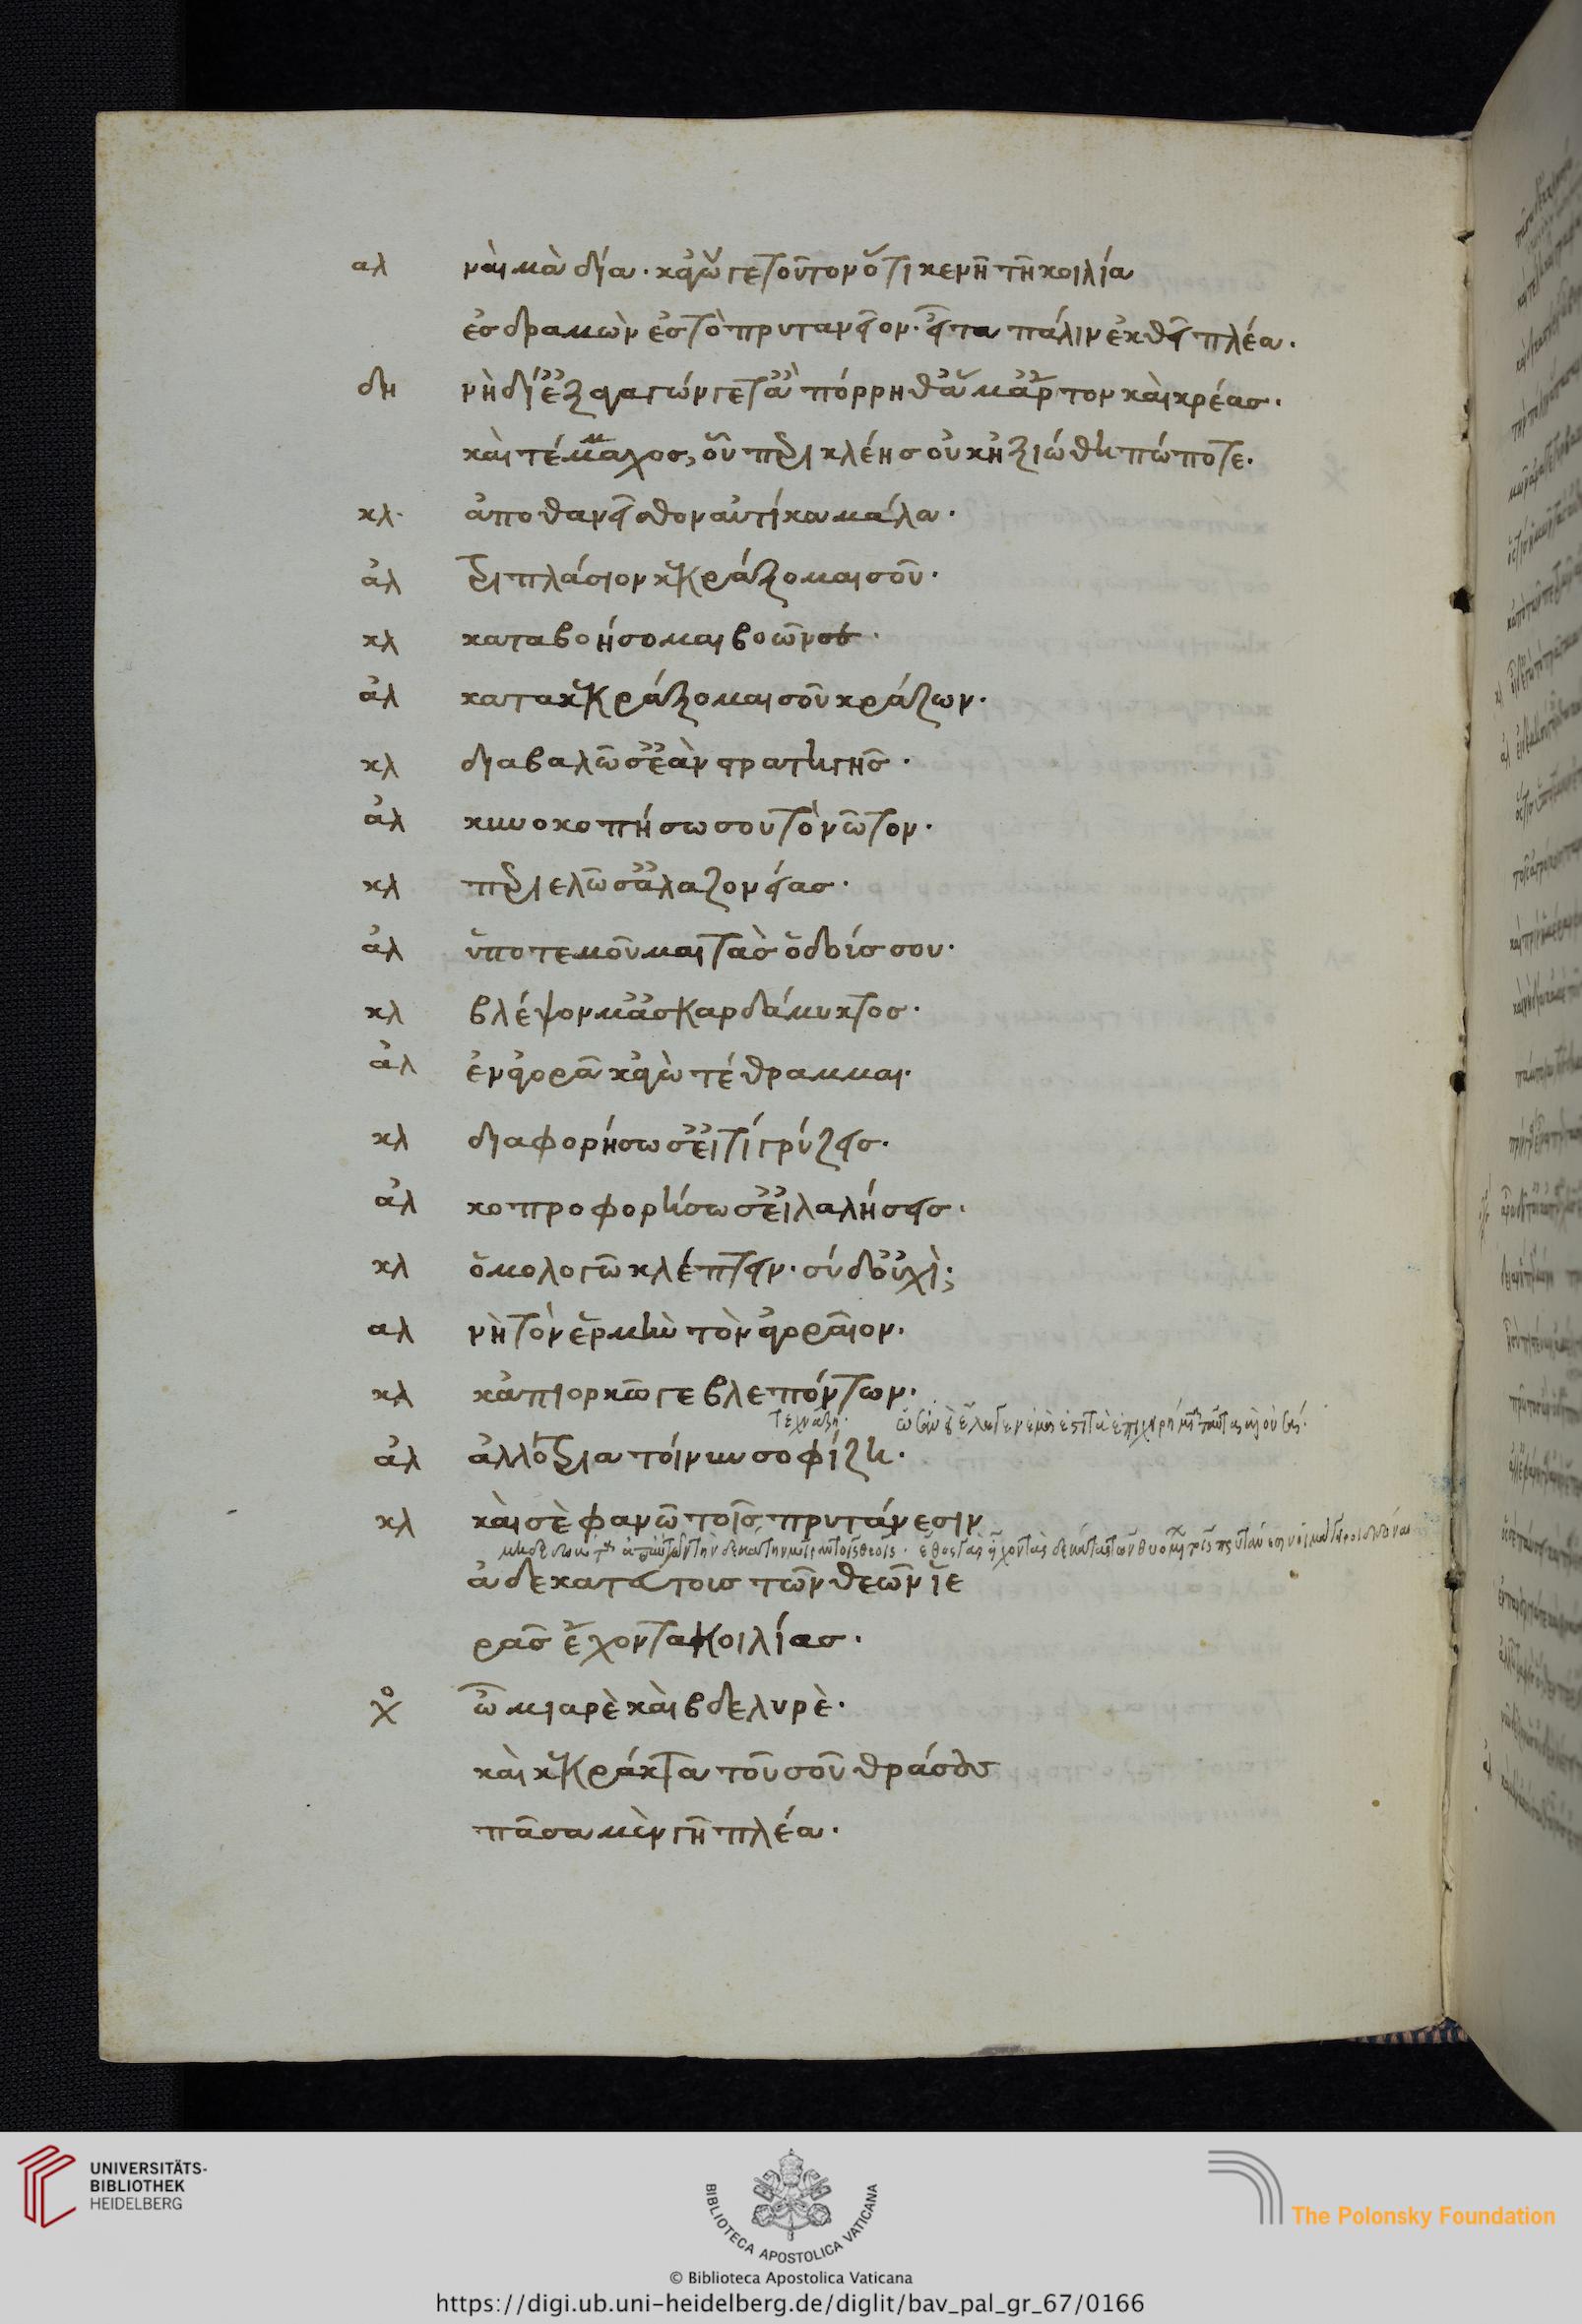 αλ ναὶ μὰ δία· κἄγωγε τοῦτον ὅτι κενῆ τῆ κοιλία
ἐσδραμὼν ἐς τὸ πρυτανεῖον· εἶτα πάλιν ἐκθεῖ πλέα.
δη νὴ δί' ἐξάγων γε τἀπόρρηθ' ἅμ' ἄρτον καὶ κρέας·
καὶ τέμμαχος, οὗ περικλέης οὐκ ἠξιώθη πώποτε.
κλ ἀποθανεῖσθον αὐτίκα μάλα·
ἀλ τριπλάσιον κεκράξομαι σοῦ·
κλ καταβοήσομαι βοῶν σε·
ἀλ κατακεκράξομαι σοῦ κράζων.
κλ διαβαλῶ σ' ἐὰν στρατηγῆς·
ἀλ κυνοκοπήσω σου τὸ νῶτον.
κλ περιελῶ σ' ἀλαζονείας·
ἀλ ὑποτεμοῦμαι τὰς ὁδούς σου·
κλ βλέψον μ' ἀσκαρδάμυκτος·
ἀλ ἐν ἀγορᾶ κἀγὼ τέθραμμαι.
κλ διαφορήσω σ' εἴ τι γρύζεις·
ἀλ κοπροφορήσω σ' εἰ λαλήσεις·
κλ ὁμολογῶ κλέπτειν· σὺ δ' οὐχὶ;
αλ νὴ τὸν ἑρμῆν τὸν ἀγοραῖον.
κλ κἀπιορκῶ γε βλεπόντων·
ἀλ ἀλλότρια τοίνυν σοφίζη·
κλ καὶ σὲ φανῶ τοῖς πρυτάνεσιν
ἀδεκατευτους τῶν θεῶν ἱε
ρὰς ἔχοντα κοιλίας·
χο ὦ μιαρὲ καὶ βδελυρὲ·
καὶ κεκράκτα τοῦ σοῦ θράσους
πᾶσα μὲν γῆ πλέα·
UNIVERSITÄTS-
BIBLIOTHEK
HEIDELBERG
BIBLIOTECA APOSTOLICA VATICANA
The Polonsky Foundation
© Biblioteca Apostolica Vaticana
https://digi.ub.uni-heidelberg.de/diglit/bav_pal_gr_67/0166